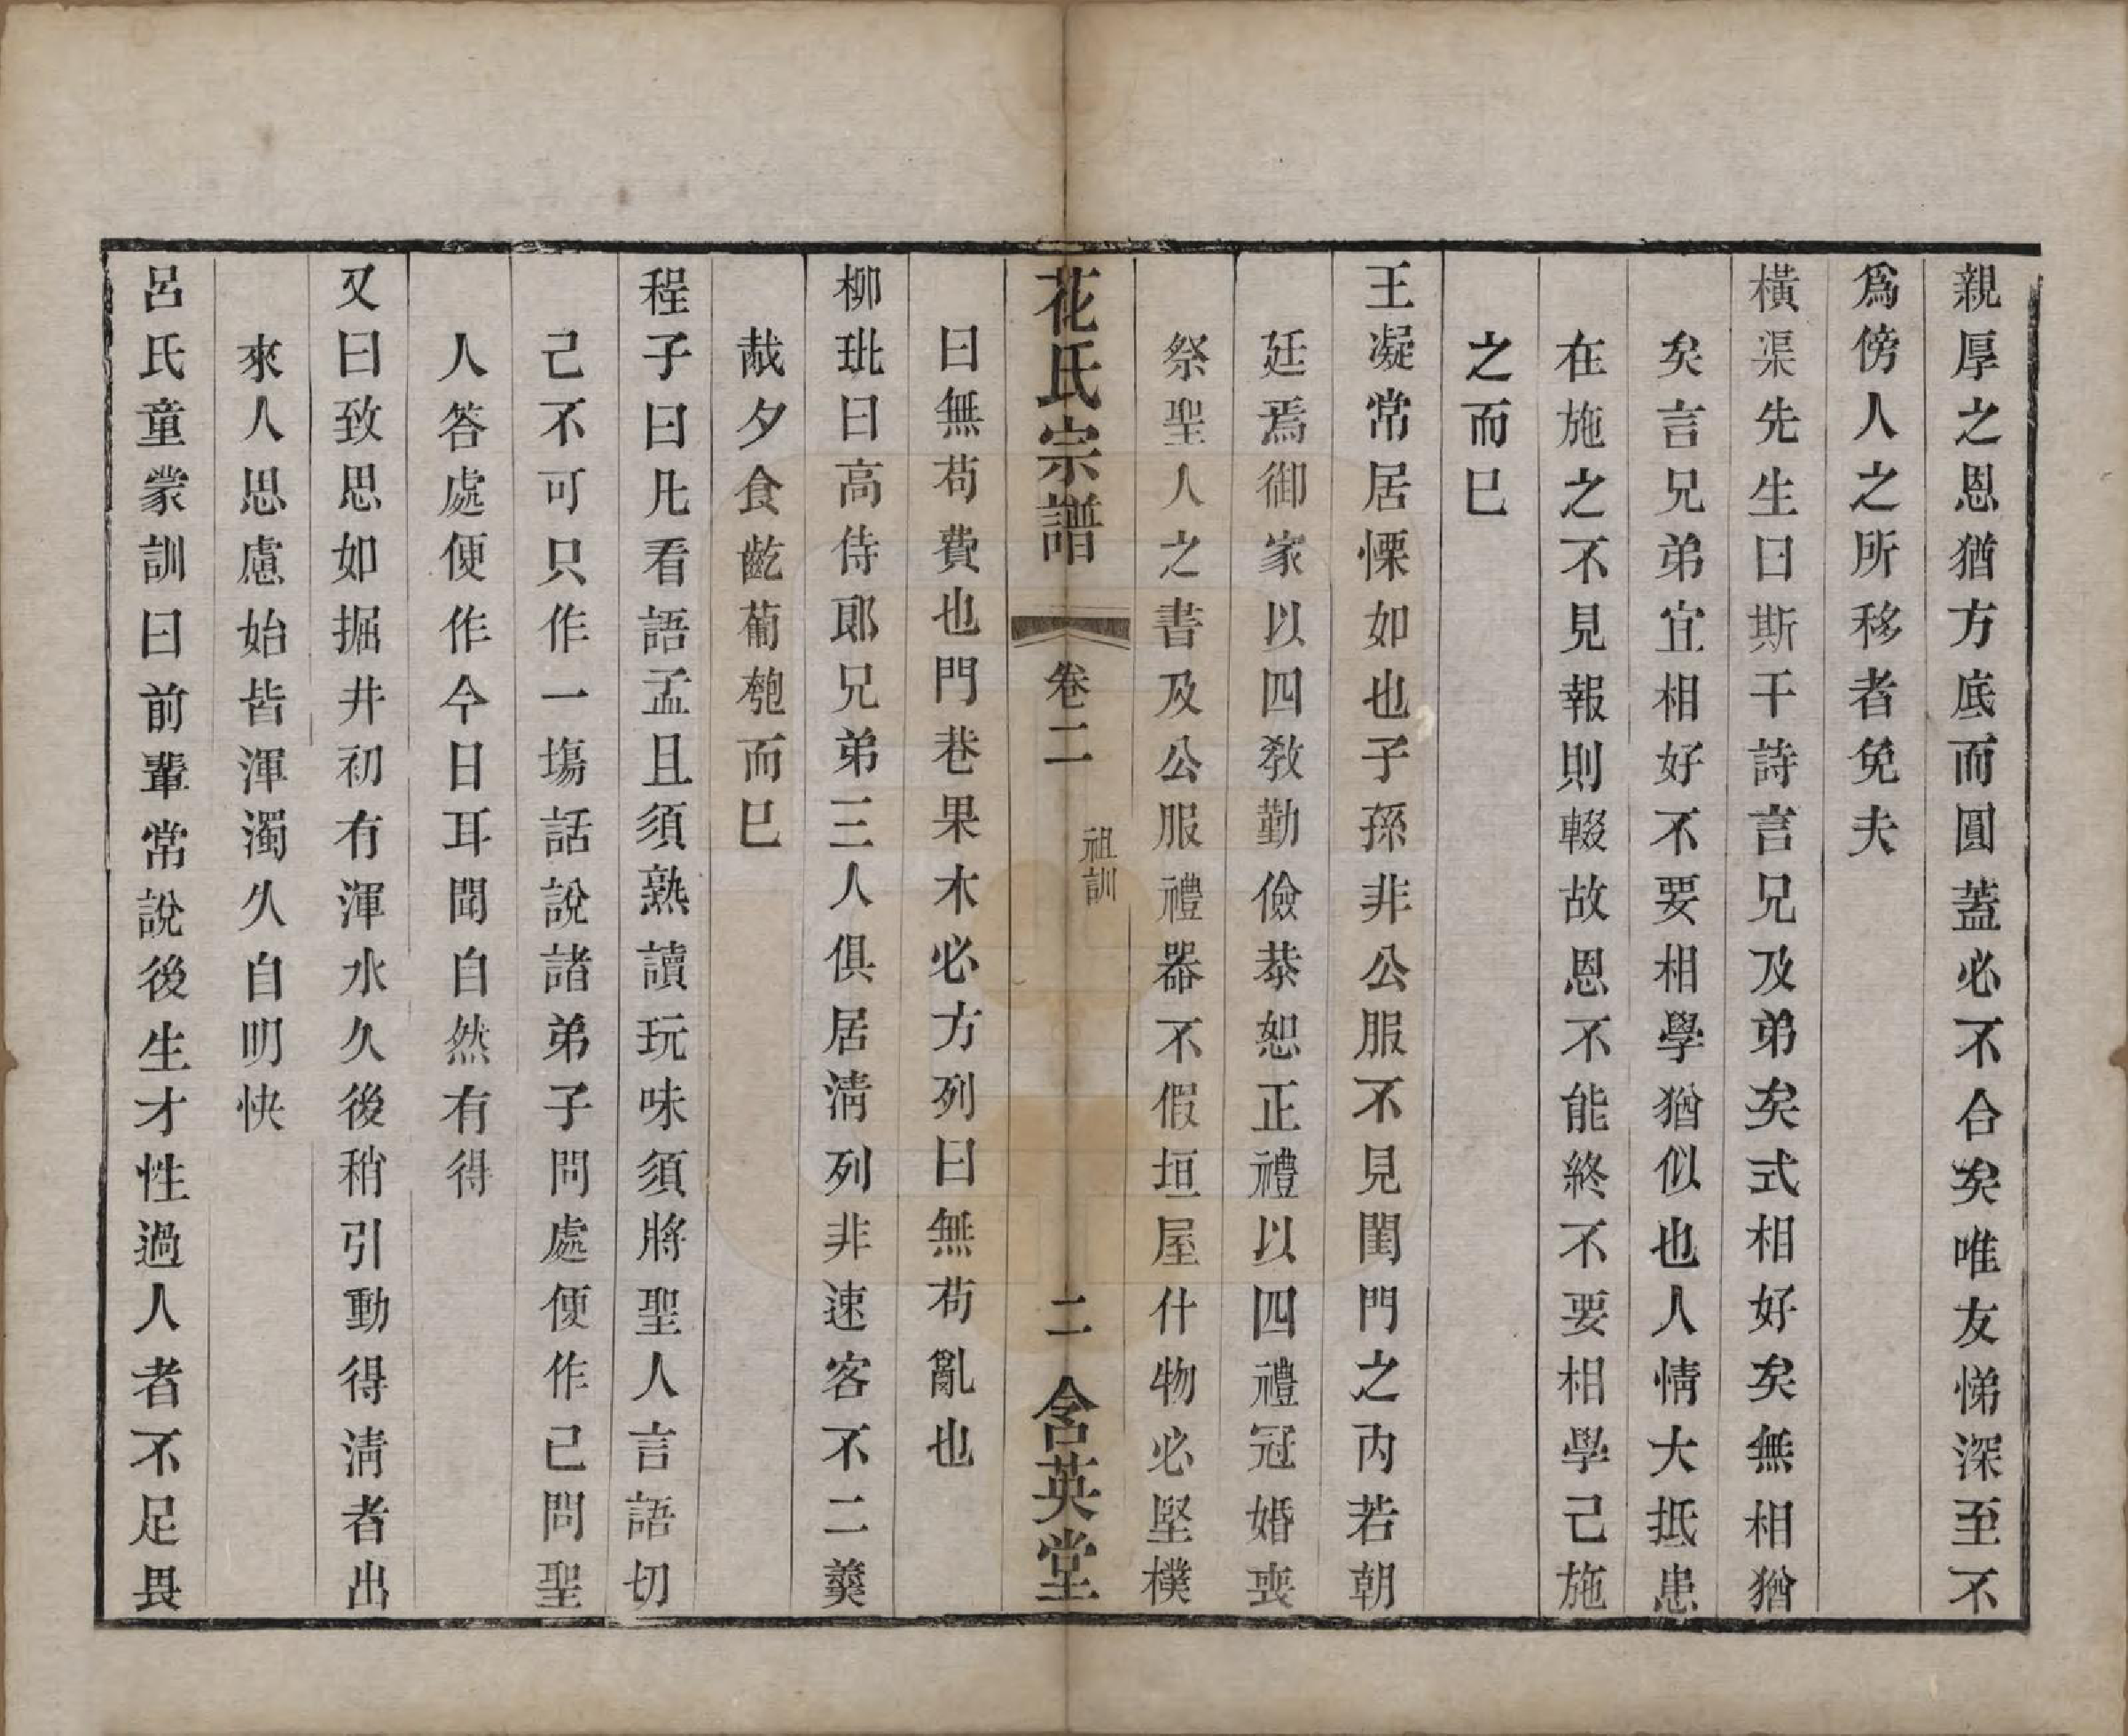 親厚之恩猶方底而圓蓋必不合矣唯友悌深至不
爲傍人之所移者免夫
橫渠先生曰斯干詩言兄及弟矣式相好矣無相猶
矣言兄弟宜相好不要相學猶似也人情大抵患
在施之不見報則輟故恩不能終不要相學己施
之而已
王凝常居慄如也子孫非公服不見閨門之內若朝
廷焉御家以四教勤儉恭恕正禮以四禮冠婚喪
祭聖人之書及公服禮器不假垣屋什物必堅樸
花氏宗譜 卷二 祖訓 二 含英堂
曰無苟費也門巷果木必方列曰無苟亂也
柳玭曰高侍郎兄弟三人俱居淸列非速客不二羹
胾夕食齕蔔匏而已
程子曰凡看語孟且須熟讀玩味須將聖人言語切
己不可只作一塲話說諸弟子問處便作己問聖
人答處便作今日耳聞自然有得
又曰致思如掘井初有渾水久後稍引動得淸者出
來人思慮始皆渾濁久自明快
呂氏童蒙訓曰前輩常說後生才性過人者不足畏